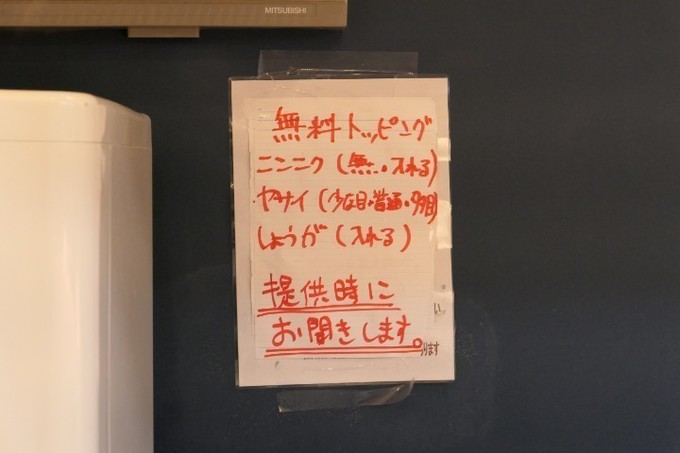 MITSUBISHI
無料トッピング
ニンニク(無・入れる)
ヤサイ(少な目・普通・多目)
しょうが(入れる)
提供時に
お聞きします。
い
ります